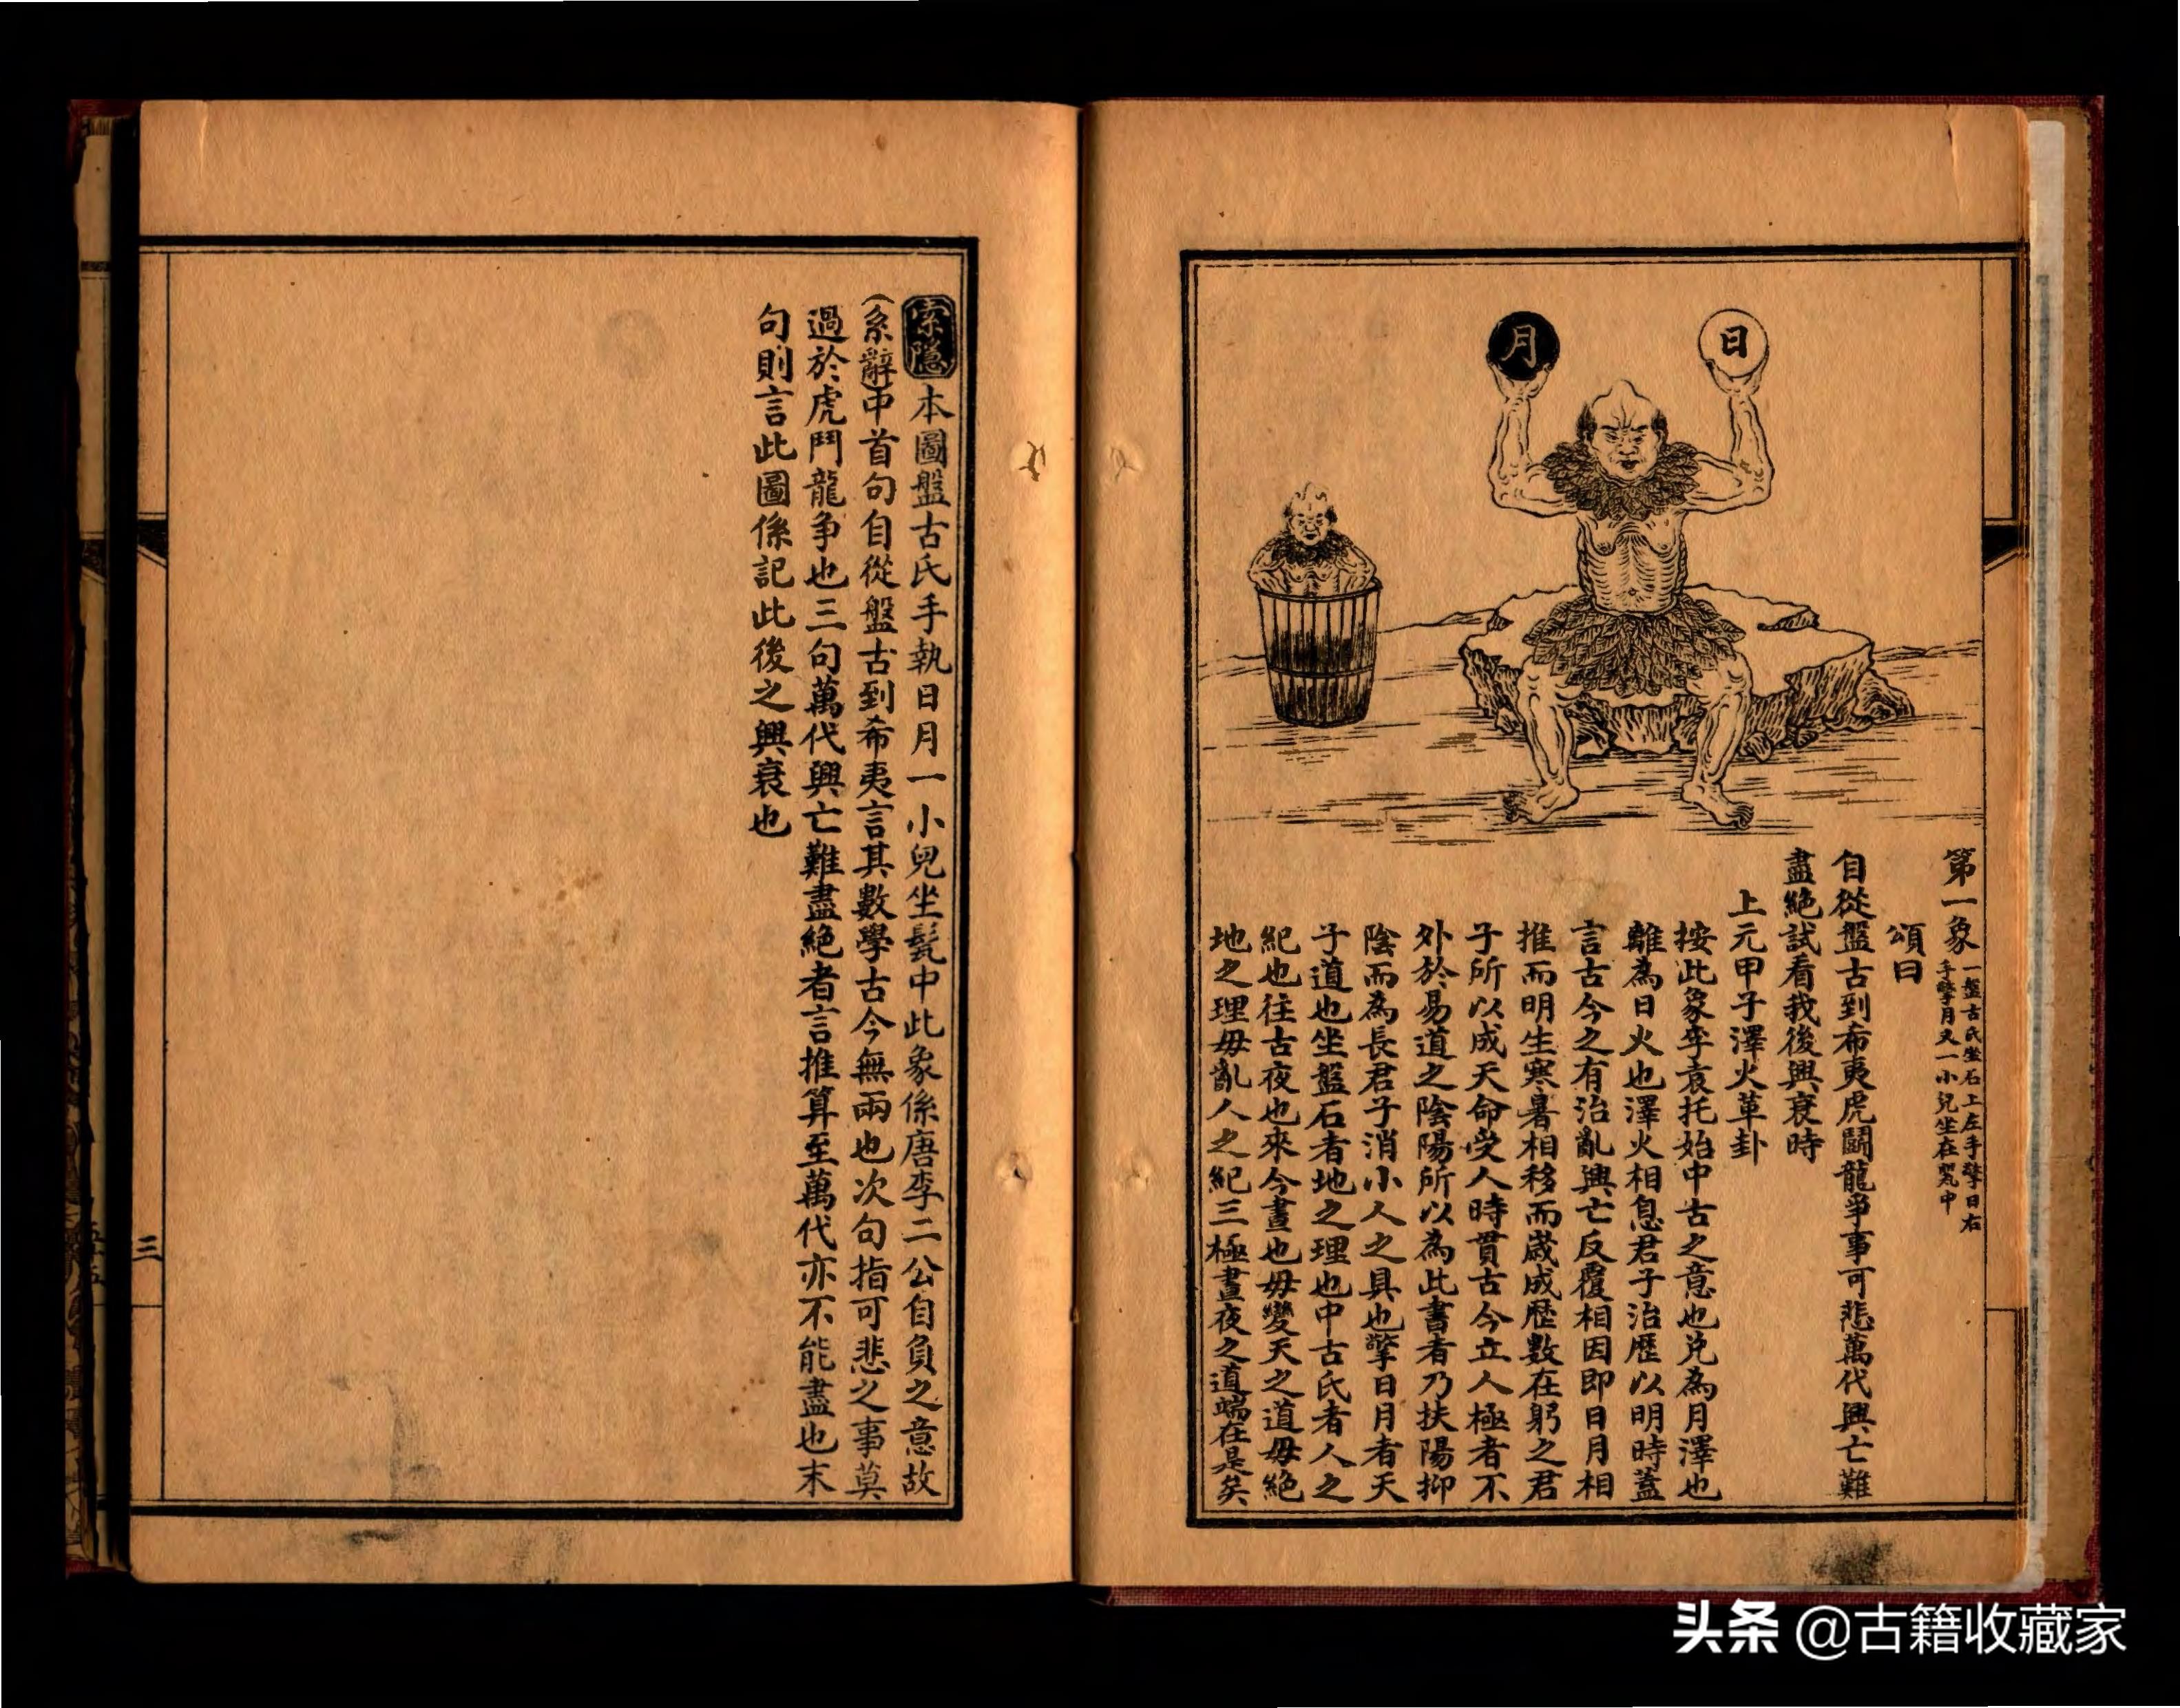 日
月
第一象
一盤古氏坐石上左手擎日右
手擎月又一小兒坐在甕中
頌曰
自從盤古到希夷虎鬭龍爭事可悲萬代興亡難
盡絕試看我後興衰時
上元甲子澤火革卦
按此象李袁托始中古之意也兌為月澤也
離為日火也澤火相息君子治歷以明時蓋
言古今之有治亂興亡反覆相因即日月相
推而明生寒暑相移而歲成歷數在躬之君
子所以成天命受人時貫古今立人極者不
外於易道之陰陽所以為此書者乃扶陽抑
陰而為長君子消小人之具也擎日月者天
子道也坐盤石者地之理也中古氏者人之
紀也往古夜也來今晝也毋變天之道毋絕
地之理毋亂人之紀三極晝夜之道端在是矣
索隱 本圖盤古氏手執日月一小兒坐甏中此象係唐李二公自負之意故
(系辭中首句自從盤古到希夷言其數學古今無兩也次句指可悲之事莫
過於虎鬥龍争也三句萬代興亡難盡絕者言推算至萬代亦不能盡也末
句則言此圖係記此後之興衰也
三
头条 @古籍收藏家